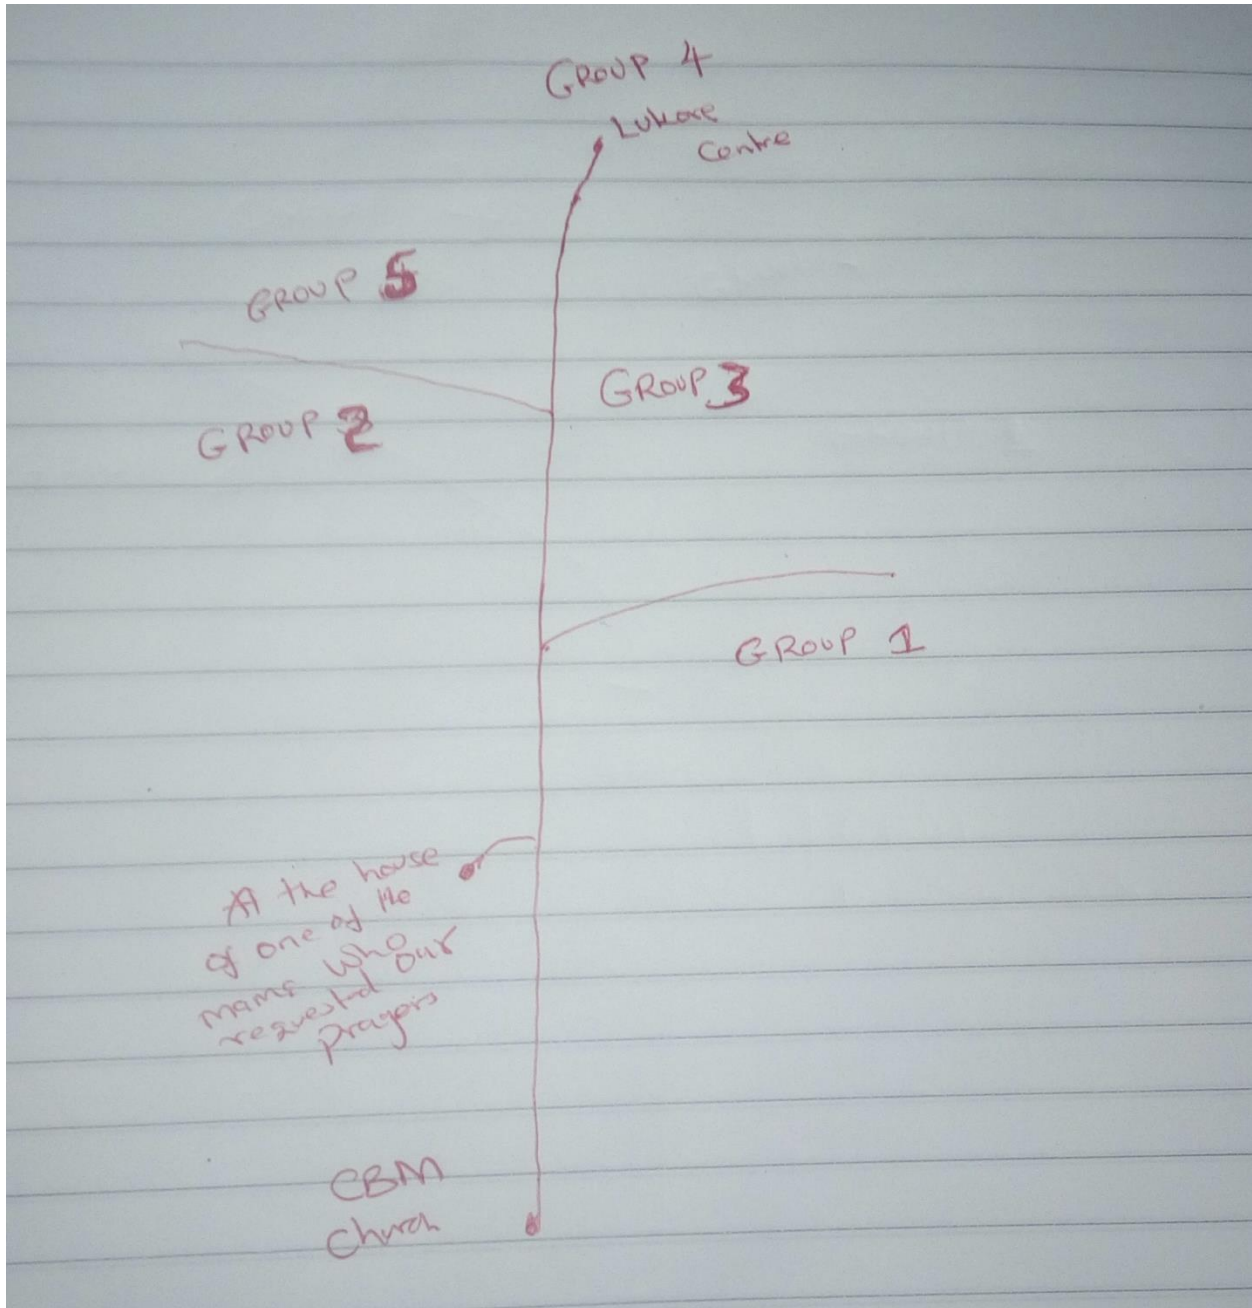 GROUP 4
Lukore
Centre
GROUP 5
GROUP 3
GROUP 2
GROUP 1
At the house
of one of the
mama who
requested our
prayers
CBM
Church